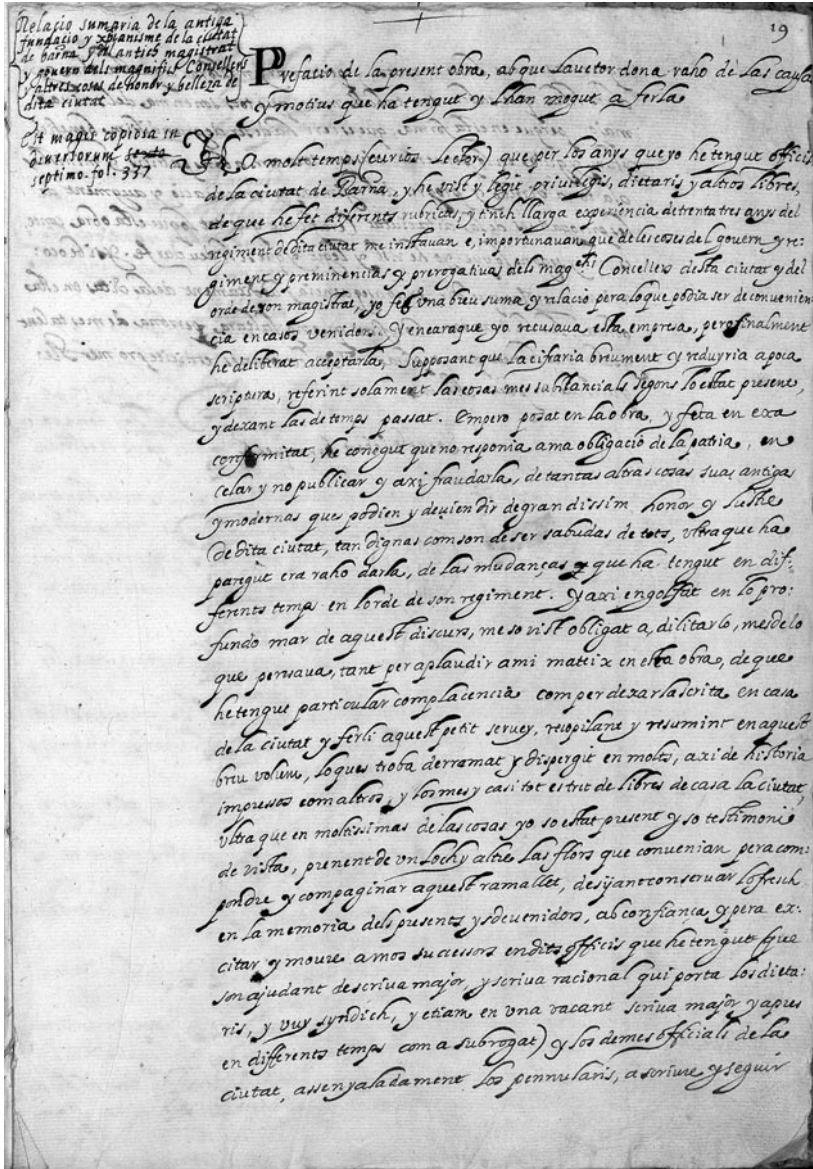 19
Relacio sumaria de la antiga
fundacio y xp̄ianisme de la ciutat
de barna y del antich magistrat
y govern dels magnifics Consellers
y altres coses de honor y belleza de
dita ciutat
est magis copiosa in
diversorum sexto
septimo. fol. 337
Prefacio de la present obra, ab que lauctor dona raho de las causas
y motius que ha tengut y lhan mogut a ferla
Ha molt temps (curios Lector) que per los anys que yo he tengut officis
de la ciutat de Barna, y he vist y legit privilegis, dietaris y altros libres,
de que he fet diferents rubricas, y tinch llarga experiencia de trenta tres anys del
regiment de dita ciutat me instavan e, importunavan que de les coses del govern y re-
giment y preminencias y prerogativas dels magchs Concellers desta ciutat y del
orde de son magistrat, yo fes una breu suma y relacio pera lo que podia ser de convenien
cia en casos venidors. Y encara que yo recusava esta empresa, pero finalment
he deliberat acceptarla, Supposant que la cifraria breument y reduyria a poca
scriptura, referint solament las cosas mes substancials segons lo estat present,
y dexant las de temps passat. Empero posat en la obra, y feta en exa
conformitat, he conegut que no responia a ma obligacio de la patria, en
celar y no publicar y axi fraudarla, de tantas altras cosas suas antigas
y modernas que podien y devien dir de grandissim honor y lustre
de dita ciutat, tan dignas com son de ser sabudas de tots, ultra que ha
paregut era raho darla, de las mudanças que ha tengut en dif-
ferents temps en lorde de son regiment. Y axi engolfat en lo pro:
fundo mar de aquest discurs, me so vist obligat a, dilitarlo, mes de lo
que pensava, tant per aplaudir a mi mateix en esta obra, de que
he tengut particular complacencia com per dexarla scrita en casa
de la ciutat y ferli aquest petit servey, recopilant y resumint en aquest
breu volum, lo ques troba derramat y dispergit en molts, axi de historia
impressos com altros, y los mes y casi tot es tret de libres de casa la ciutat,
ultra que en moltissimas de las cosas yo so estat present y so testimoni
de vista, prenent de un Loch y altre las flors que convenian pera com:
pondre y compaginar aquest ramallet, desijant conservar lo fresch
en la memoria dels presents y sdevenidors, ab confiança y pera ex:
citar y moure a mos successors en dits officis que he tengut (que
son ajudant de scriva major, y scriva racional qui porta los dieta:
ris, y vuy syndich, y etiam en una vacant scriva major y apres
en differents temps com a subrogat) y los demes officials de la
ciutat, assenyaladament los pennularis, a scriure y seguir